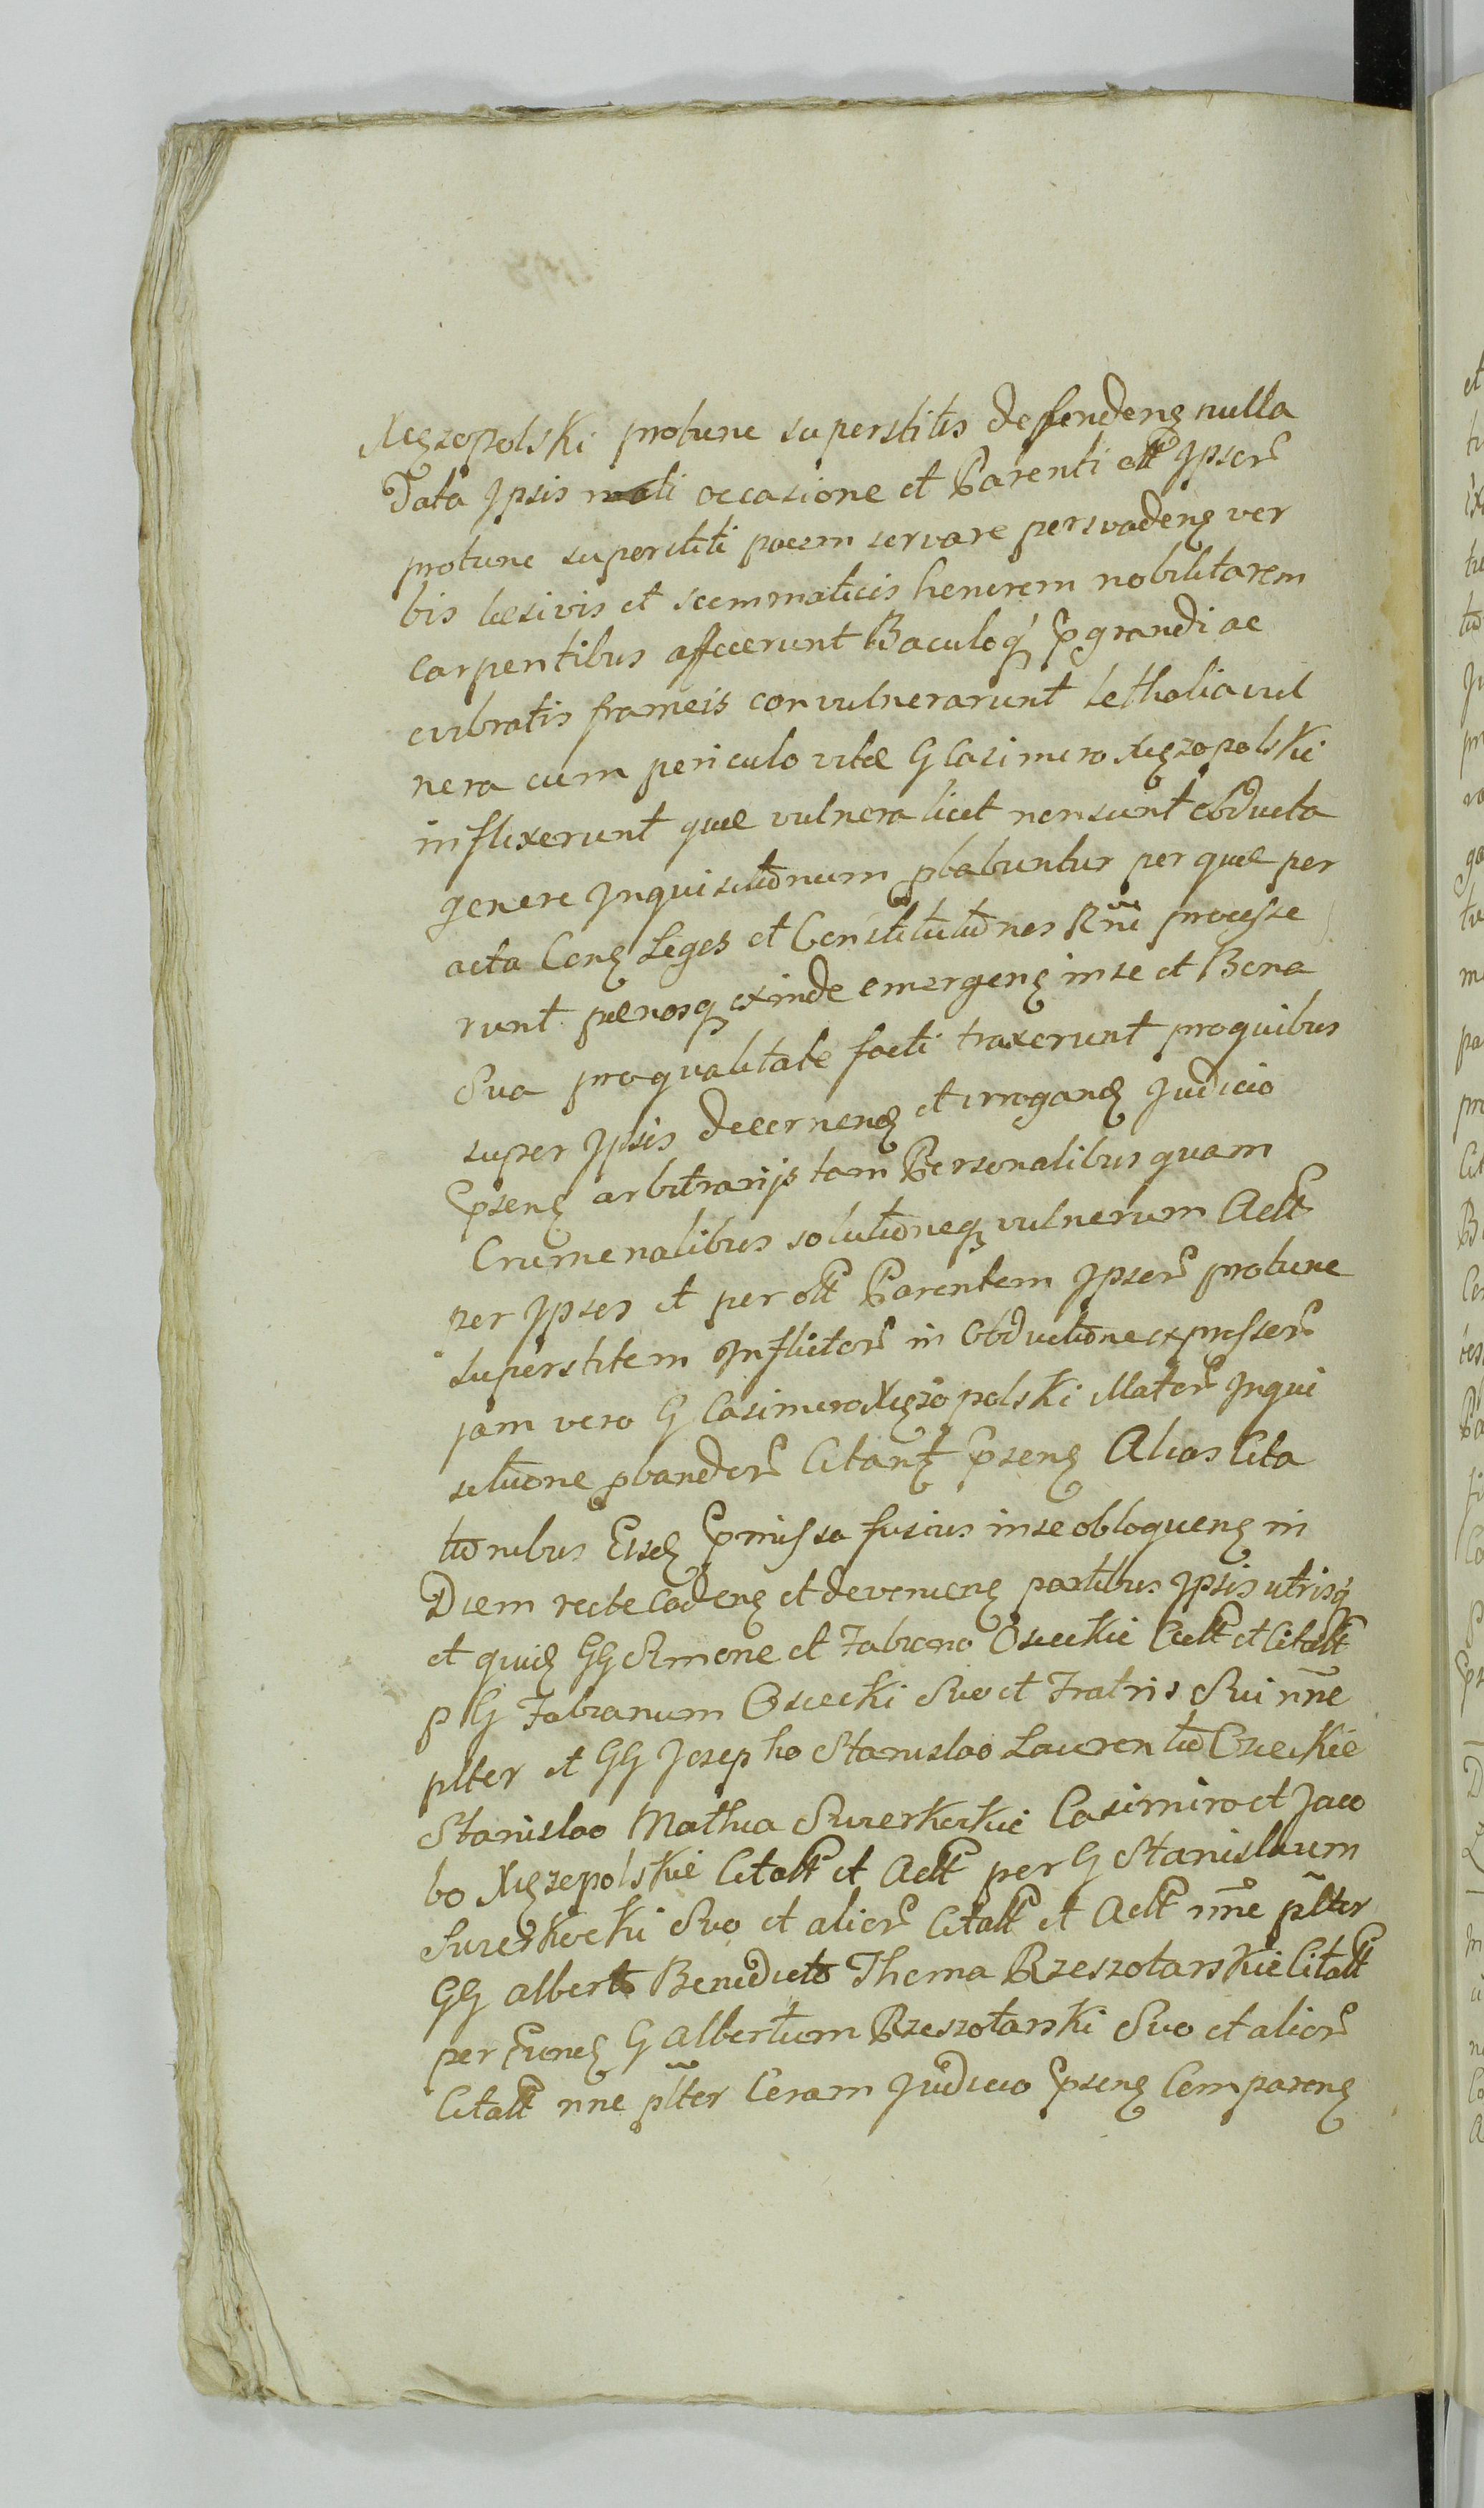 Xięzopolski protunc superstitis defendenȝ nulla
Data Ipsis mali occasione et Parenti olt Ipsor
protunc superstiti pacem servare persvadenȝ ver
bis lesivis et scommaticis honorem nobilitarem
carpentibus affecerunt Baculoq pgrandi ac
evibratis frameis convulnerarunt lethalia vul
nera cum periculo vitæ G Casimiro Xięzopolski
inflixerunt quæ vulnera licet non sunt obducta
genere Inquisitionum pbabuntur per quæ per
acta Conȝ Leges et Constitutiones Rni processe
runt pœnasq exinde emergenȝ in se et Bona
Sua pro qualitate facti traxerunt pro quibus
super Ipsis decernenȝ et irroganȝ Judicio
Psenȝ arbitrarijs tam Personalibus quam
Crumenalibus solutioneq vulnerum Actt
per Ipsos et per olt Parentem Ipsor protunc
superstitem Inflictor in Obductione expressor
jam vero G Casimiro Xięzopolski Illator Inqui
sitione pbandor Citant Psenȝ Alias Cita
tionibus Eisdȝ Pmissa fusius in se obloquenȝ in
Diem recte cadenȝ et devenienȝ partibus Ipsis utrisq
et quidȝ GG Simone et Fabiano Osieckie Actt et Citatt
p G Fabianum Osiecki Suo et Fratris Sui nne
plter et GG Josepho Stanislao Laurentio Osieckie
Stanislao Mathia Swierkockie Casimiro et Jaco
bo Xięzopolskie Citatt et Actt per G Stanislaum
Swierkocki Suo et alior Citatt et Actt nne plter
GG Alberto Benedicto Thoma Rzeszotarskie Citatt
per Eundȝ G Albertum Rzeszotarski Suo et alior
Citatt nne plter Coram Judicio Psenȝ Comparenȝ